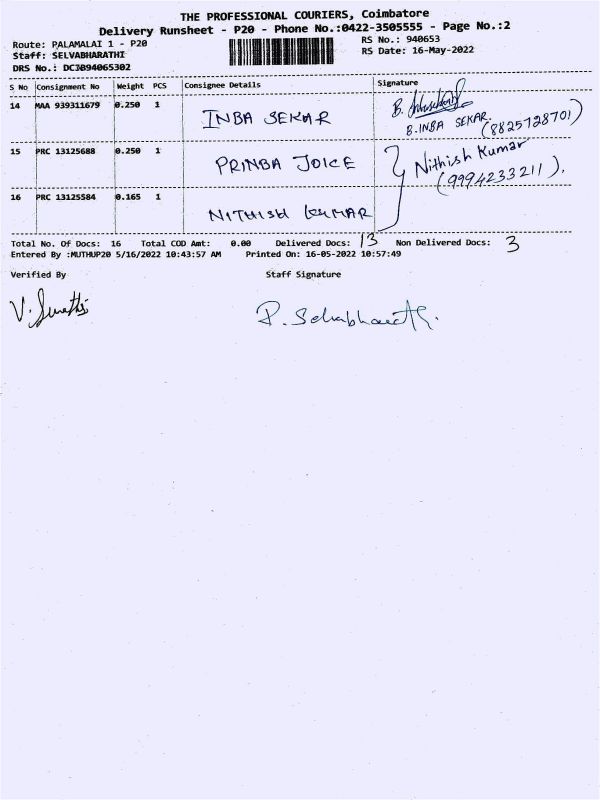 THE PROFESSIONAL COURIERS, Coimbatore
Delivery Runsheet - P20 - Phone No.:0422-3505555 - Page No.:2
Route: PALAMALAI 1 - P20
RS No.: 940653
Staff: SELVABHARATHI
RS Date: 16-May-2022
DRS No.: DCJB94065302
S No Consignment No Weight PCS Consignee Details Signature
14 MAA 939311679 0.250 1 INBA SEKAR
B. INBA SEKAR. (8825728701)
15 PRC 13125688 0.250 1 PRINBA JOICE Nithish Kumar
(9994233211).
16 PRC 13125584 0.165 1 NITHISH KUMAR
Total No. Of Docs: 16 Total COD Amt: 0.00 Delivered Docs: 13 Non Delivered Docs: 3
Entered By :MUTHUP20 5/16/2022 10:43:57 AM Printed On: 16-05-2022 10:57:49
Verified By Staff Signature